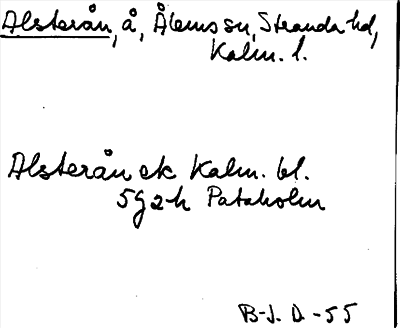 Alsterån, å, Ålems sn, Stranda hd,
Kalm. l.
Alsterån ek Kalm. bl.
5G 2h Pataholm
B-J. D. -55